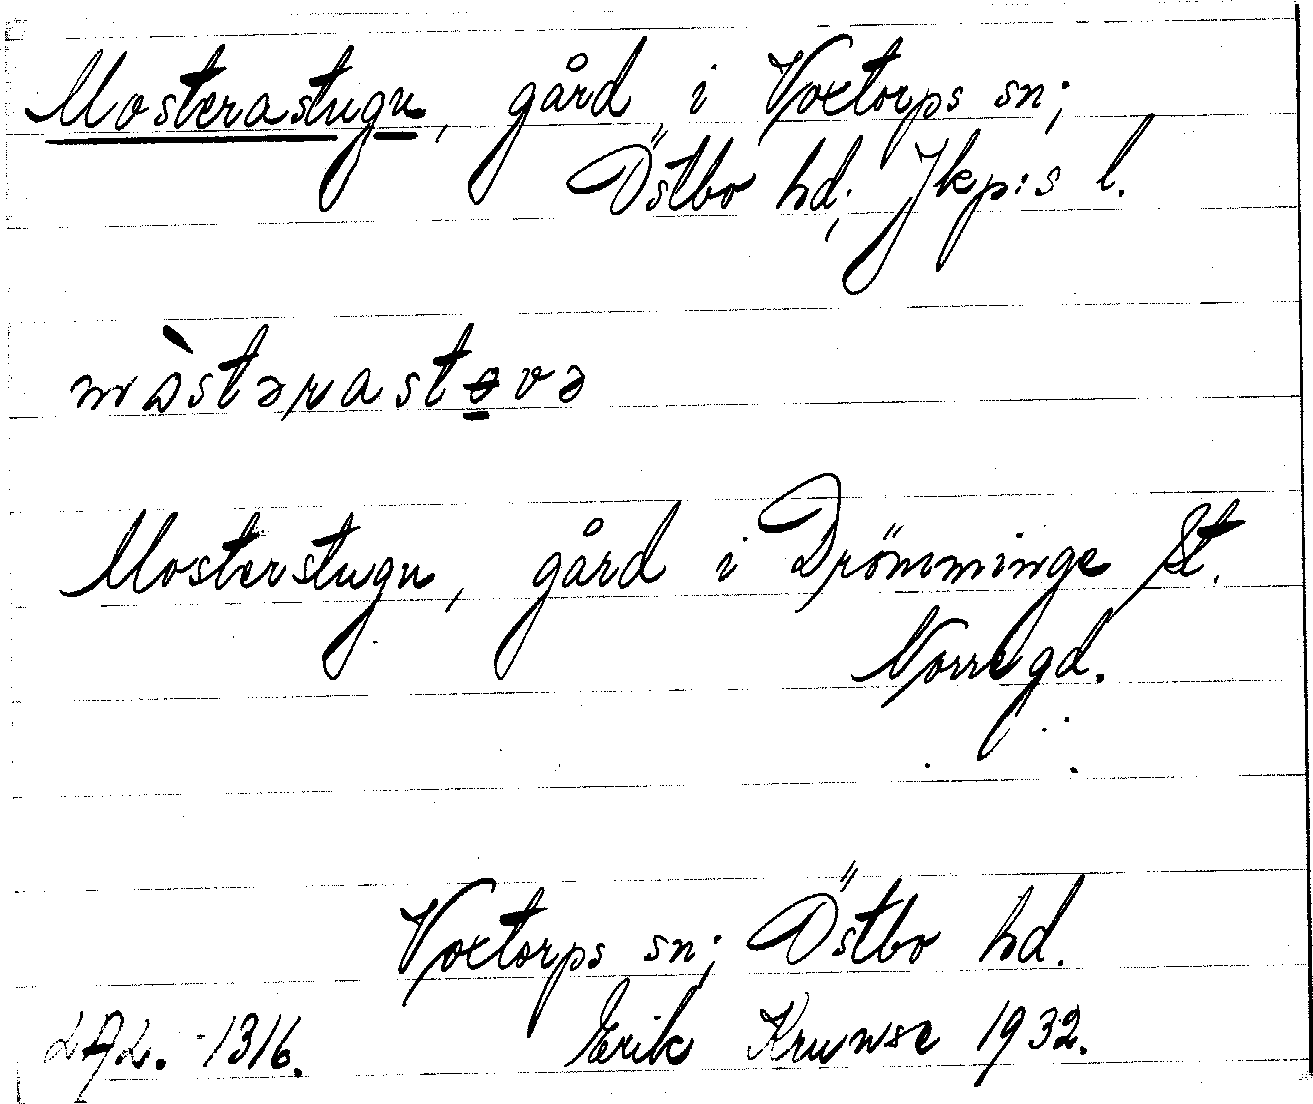 Mosterastugu, gård i Voxtorps sn;
Östbo hd; Jkp:s l.
mòstərastɵvə
Mosterstugu, gård i Drömminge St.
Norregd.
Voxtorps sn; Östbo hd.
LAL. 1316. Erik 1932.